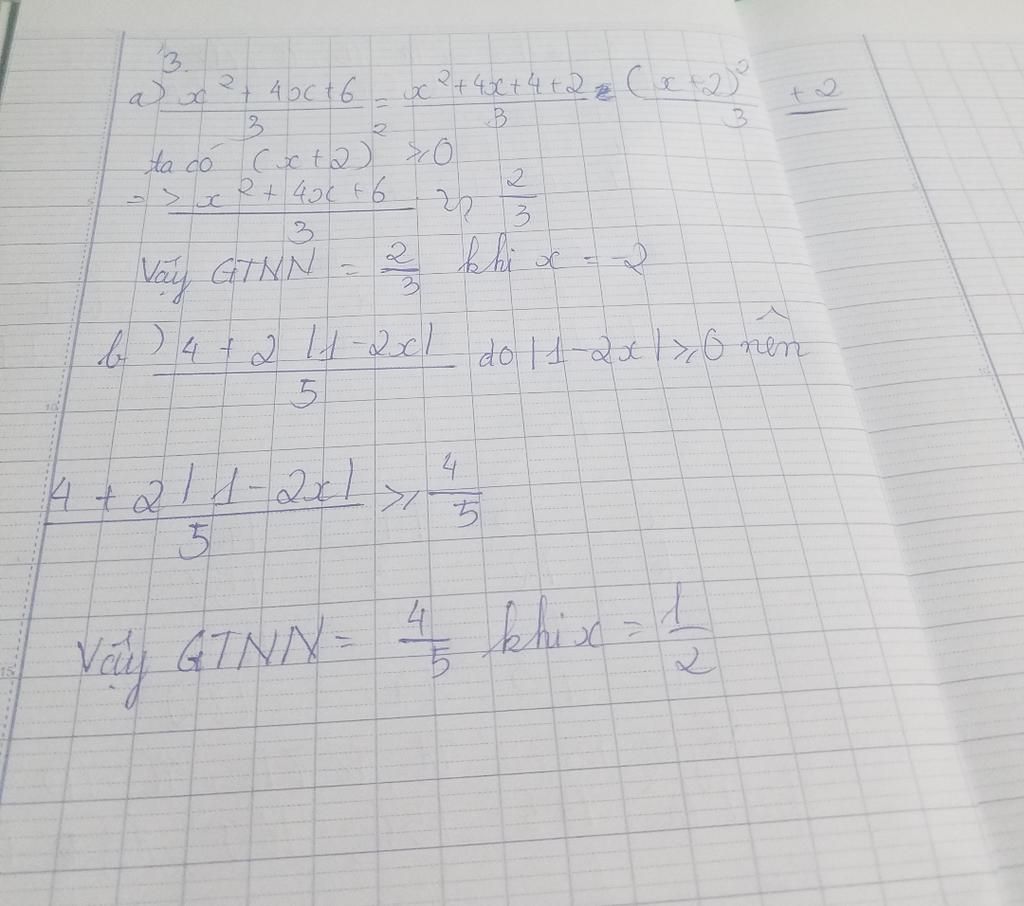 3.
a) x² + 4x + 6 / 3 = x² + 4x + 4 + 2 / 3 = (x + 2)² + 2 / 3
ta có (x + 2)² ≥ 0
=> x² + 4x + 6 / 3 ≥ 2/3
Vậy GTNN = 2/3 khi x = -2
b) 4 + 2 |1 - 2x| / 5 do |1 - 2x| ≥ 0 nên
4 + 2 |1 - 2x| / 5 ≥ 4/5
Vậy GTNN = 4/5 khi x = 1/2